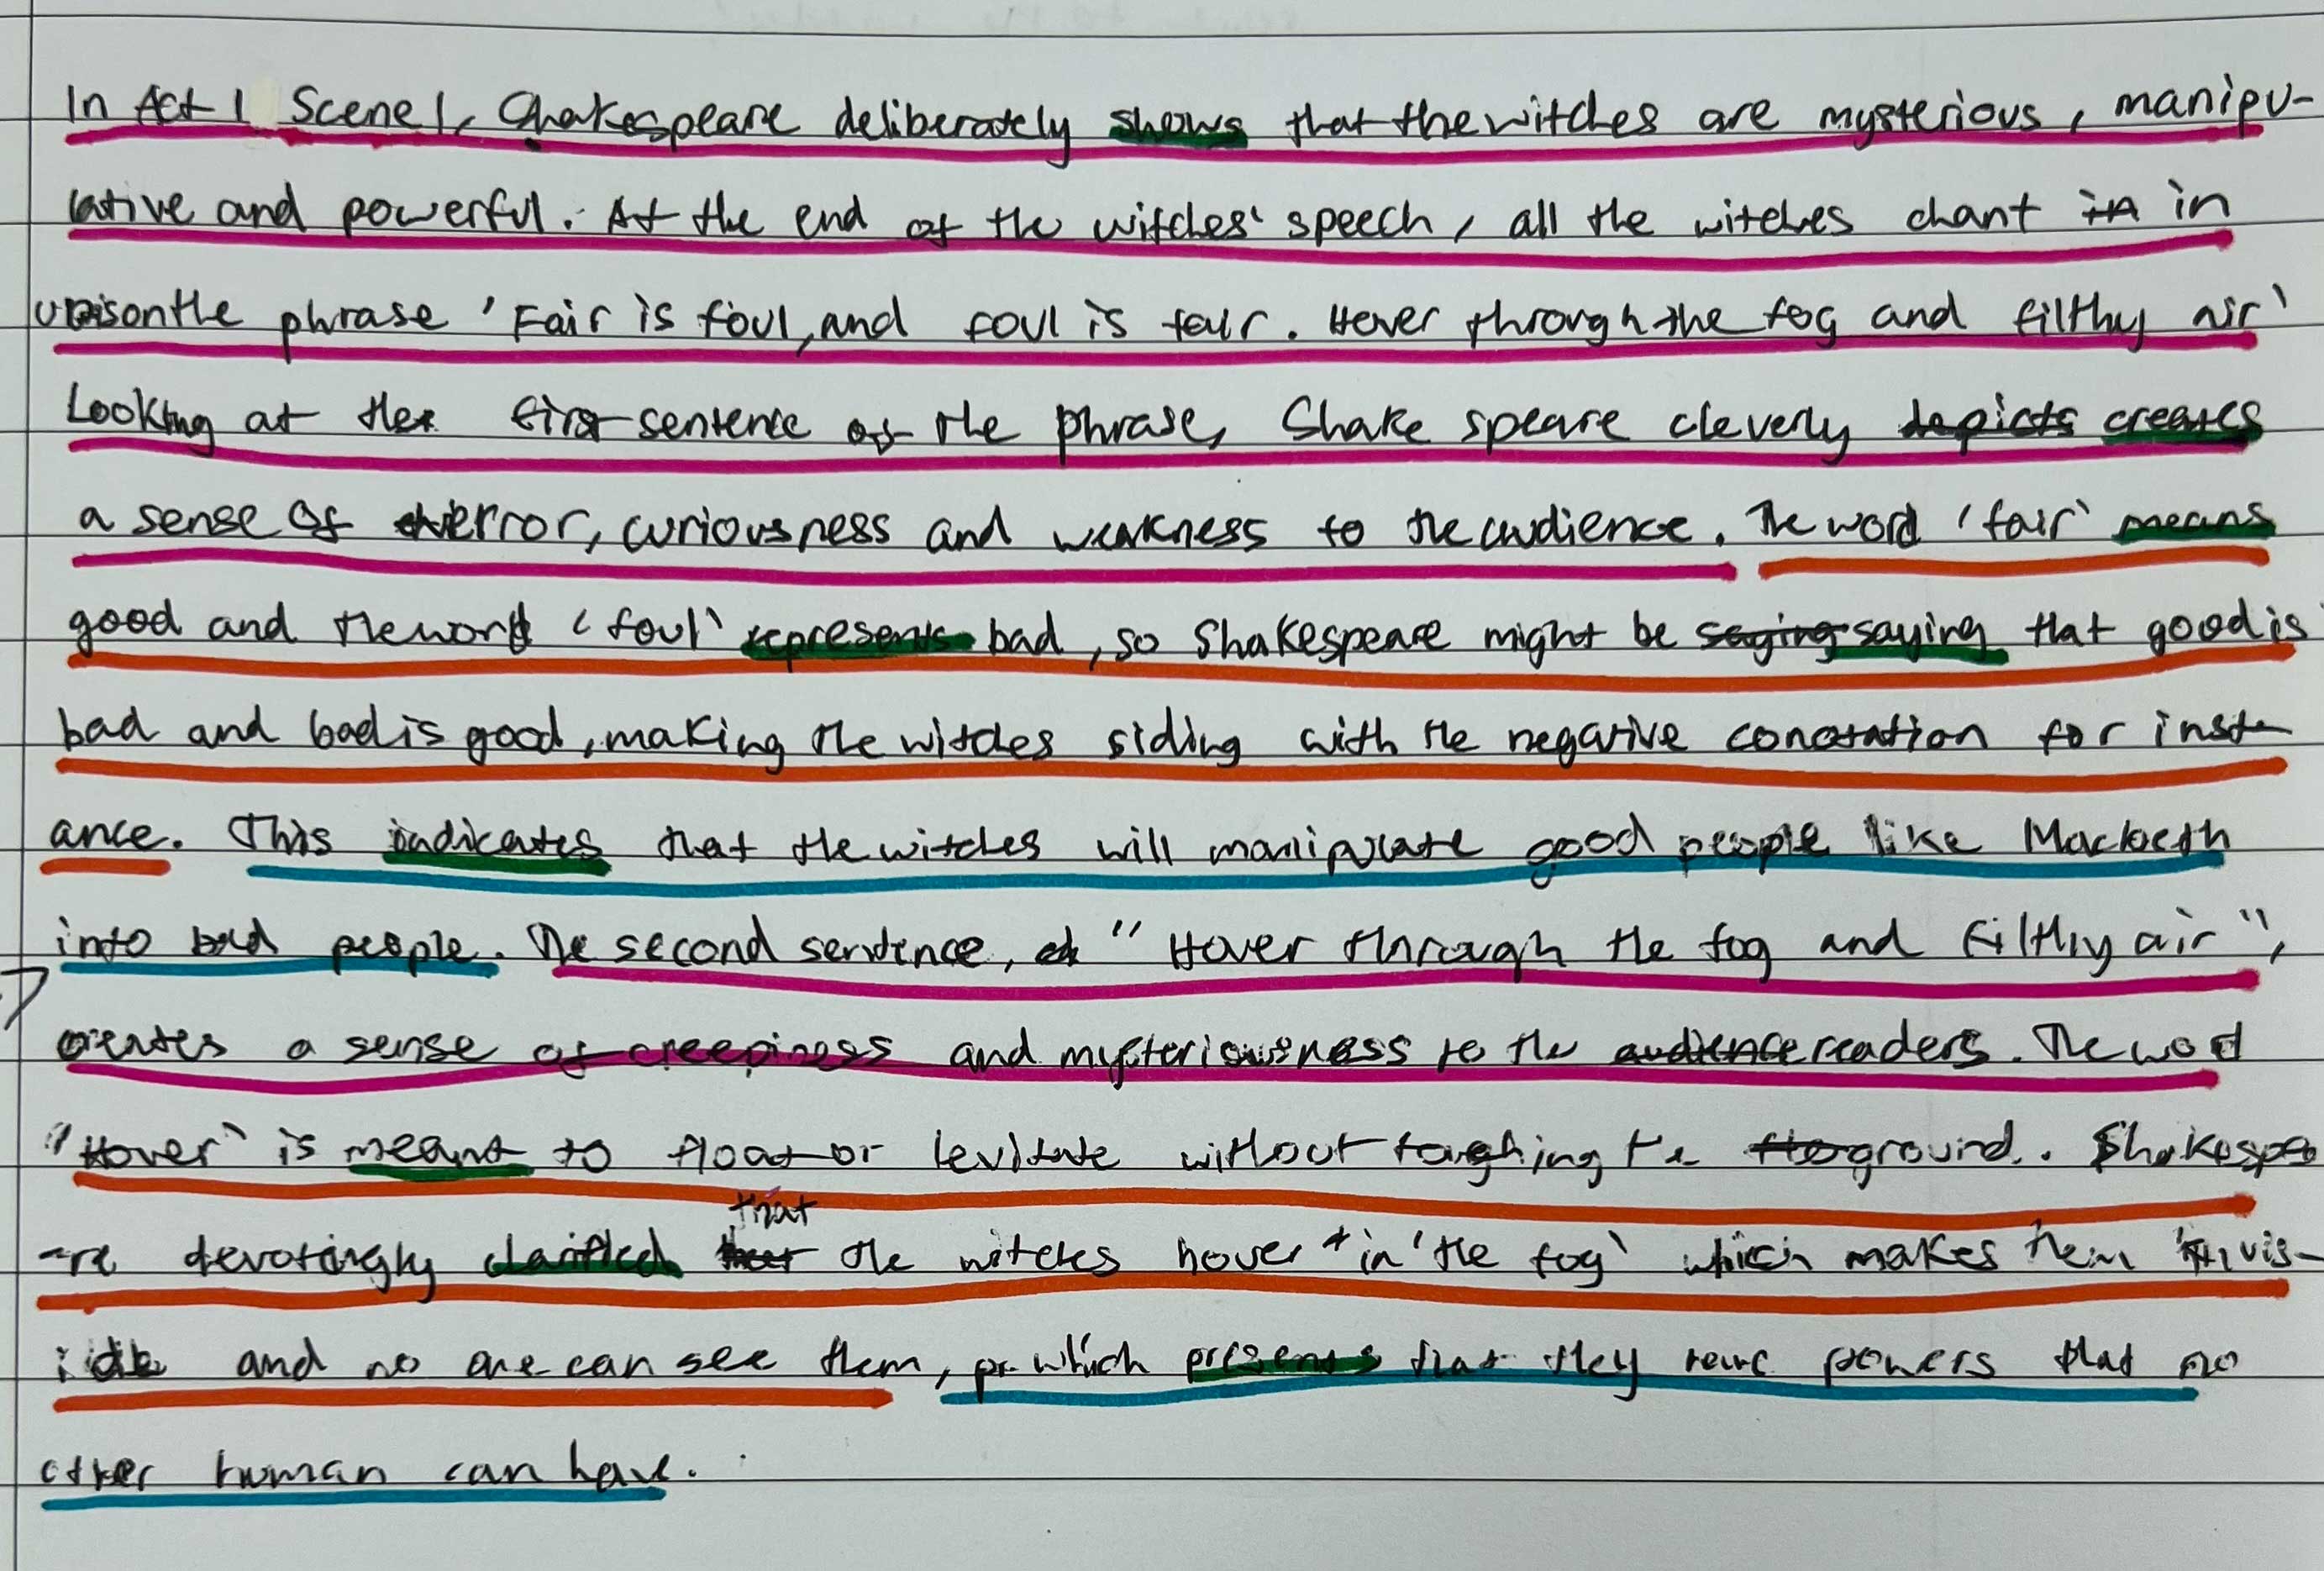 In Act 1 Scene 1, Shakespeare deliberately shows that the witches are mysterious, manipu-
lative and powerful. At the end of the witches' speech, all the witches chant in in
unison the phrase 'Fair is foul, and foul is fair. Hover through the fog and filthy air'
Looking at the first sentence of the phrase, Shake speare cleverly depicts creates
a sense of error, curiousness and weakness to the audience. The word 'fair' means
good and the word 'foul' represents bad, so Shakespeare might be saying saying that good is
bad and bad is good, making the witches siding with the negative conotation for inst-
ance. This indicates that the witches will manipulate good people like Macbeth
into bad people. The second sentence, "Hover through the fog and filthy air",
creates a sense of creepiness and mysteriousness to the audience readers. The word
"Hover' is meant to float or levitate without toughing the ground. Shakespe
-re clarified that the witches hover in 'the fog' which makes them invis-
and no one can see them, which presents that they have powers that no
other human can have.